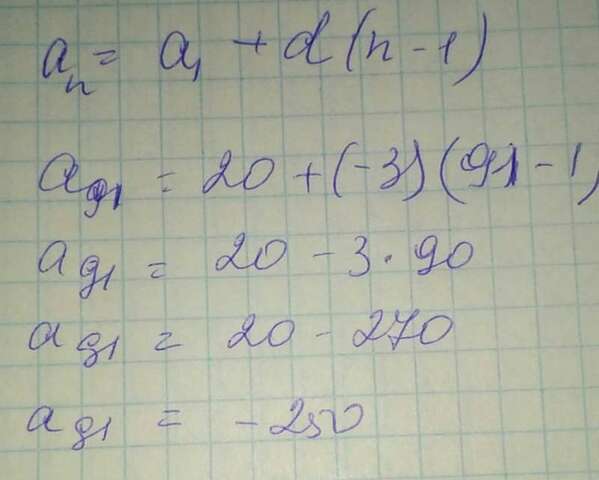 aₙ = a₁ + d(n - 1)
a₉₁ = 20 + (-3)(91 - 1)
a₉₁ = 20 - 3 · 90
a₉₁ = 20 - 270
a₉₁ = -250